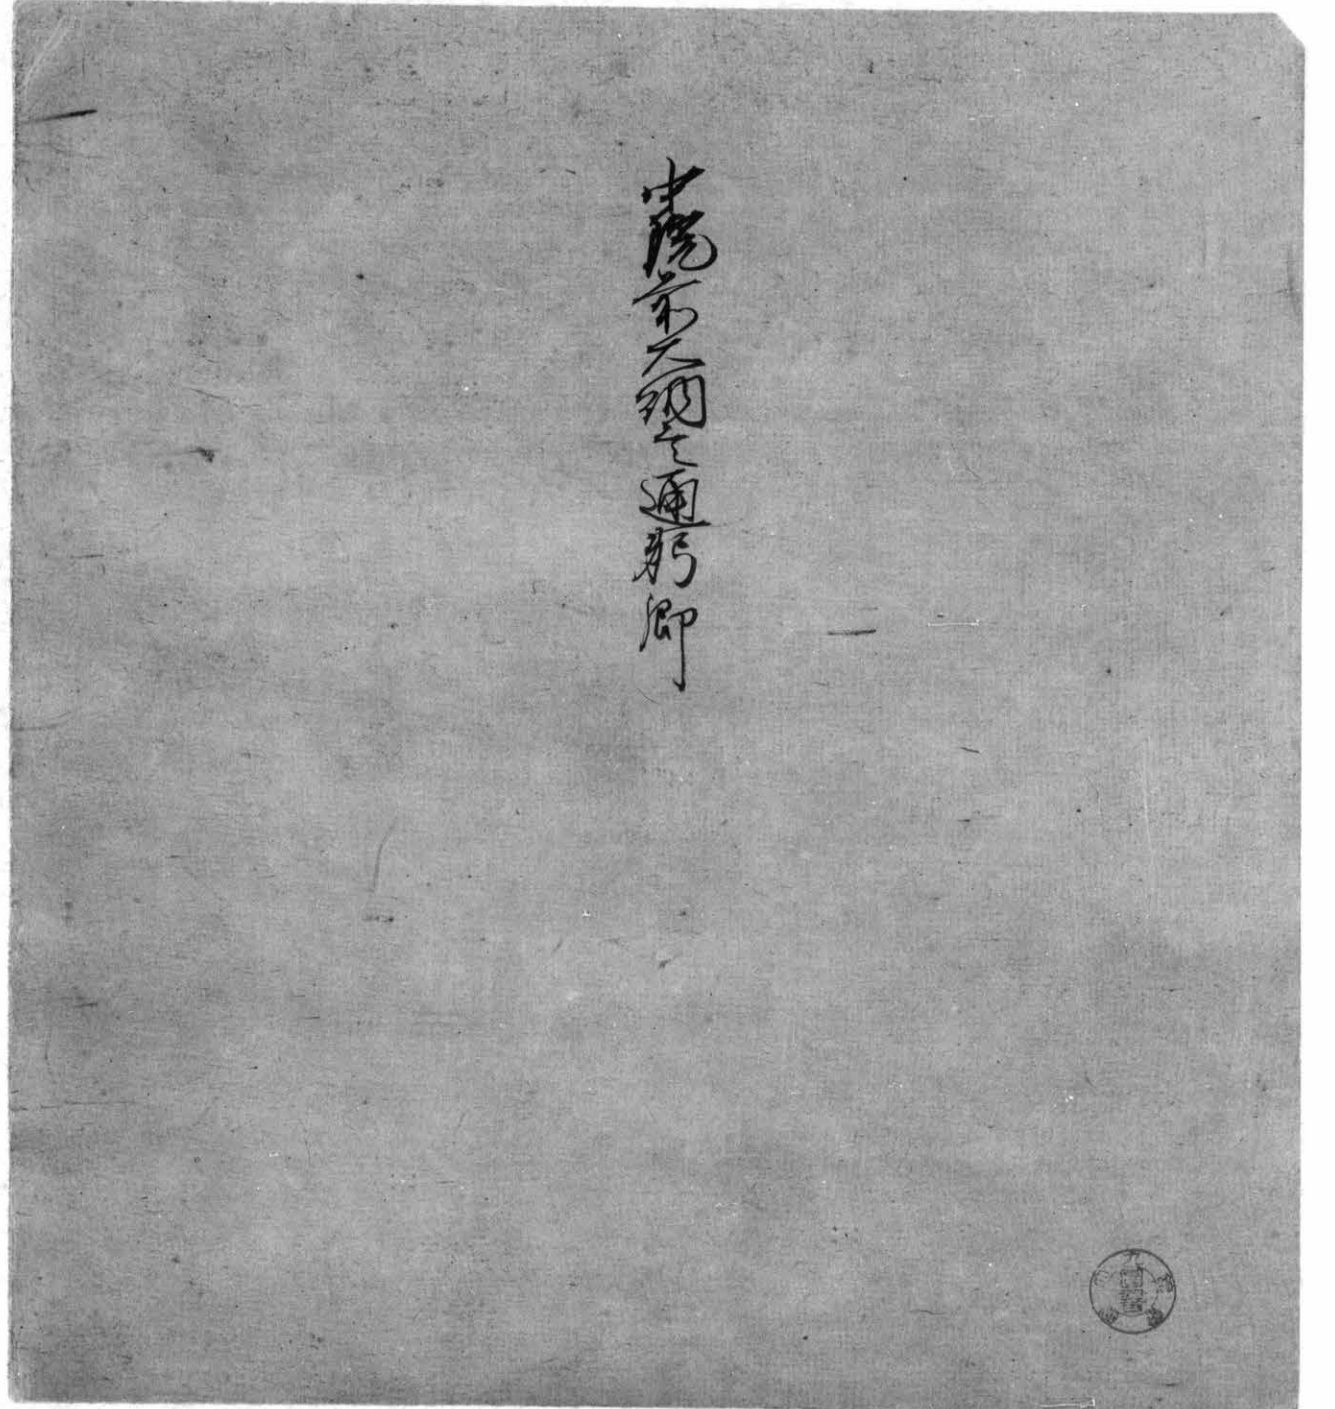 中院前大納言通躬卿